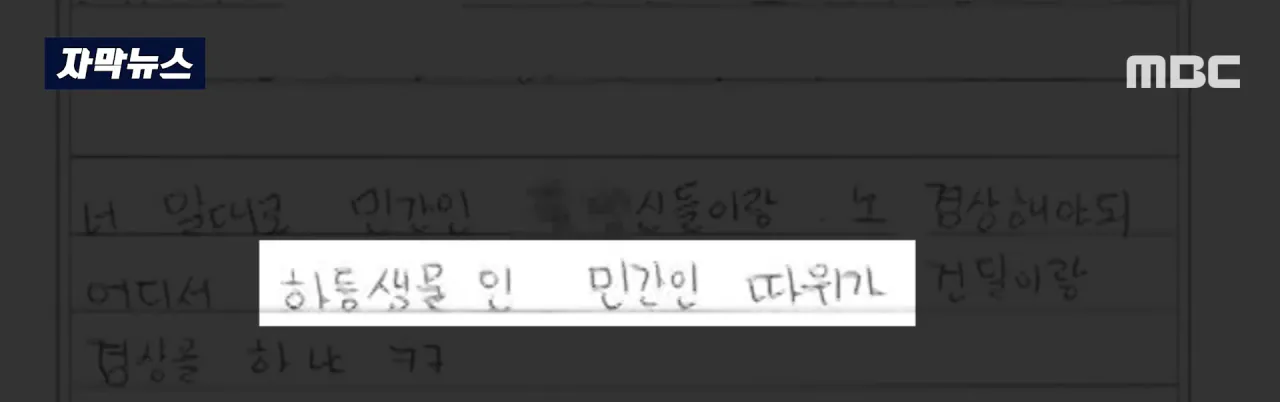 자막뉴스
MBC
너 말대로 민간인 신들이랑 노 겸상해야되
어디서 하등생물 인 민간인 따위가 건달이랑
겸상을 하냐 ㅋㅋ